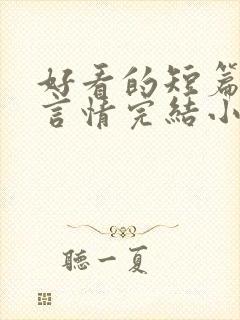 好看的短篇
言情完結小
聽一夏